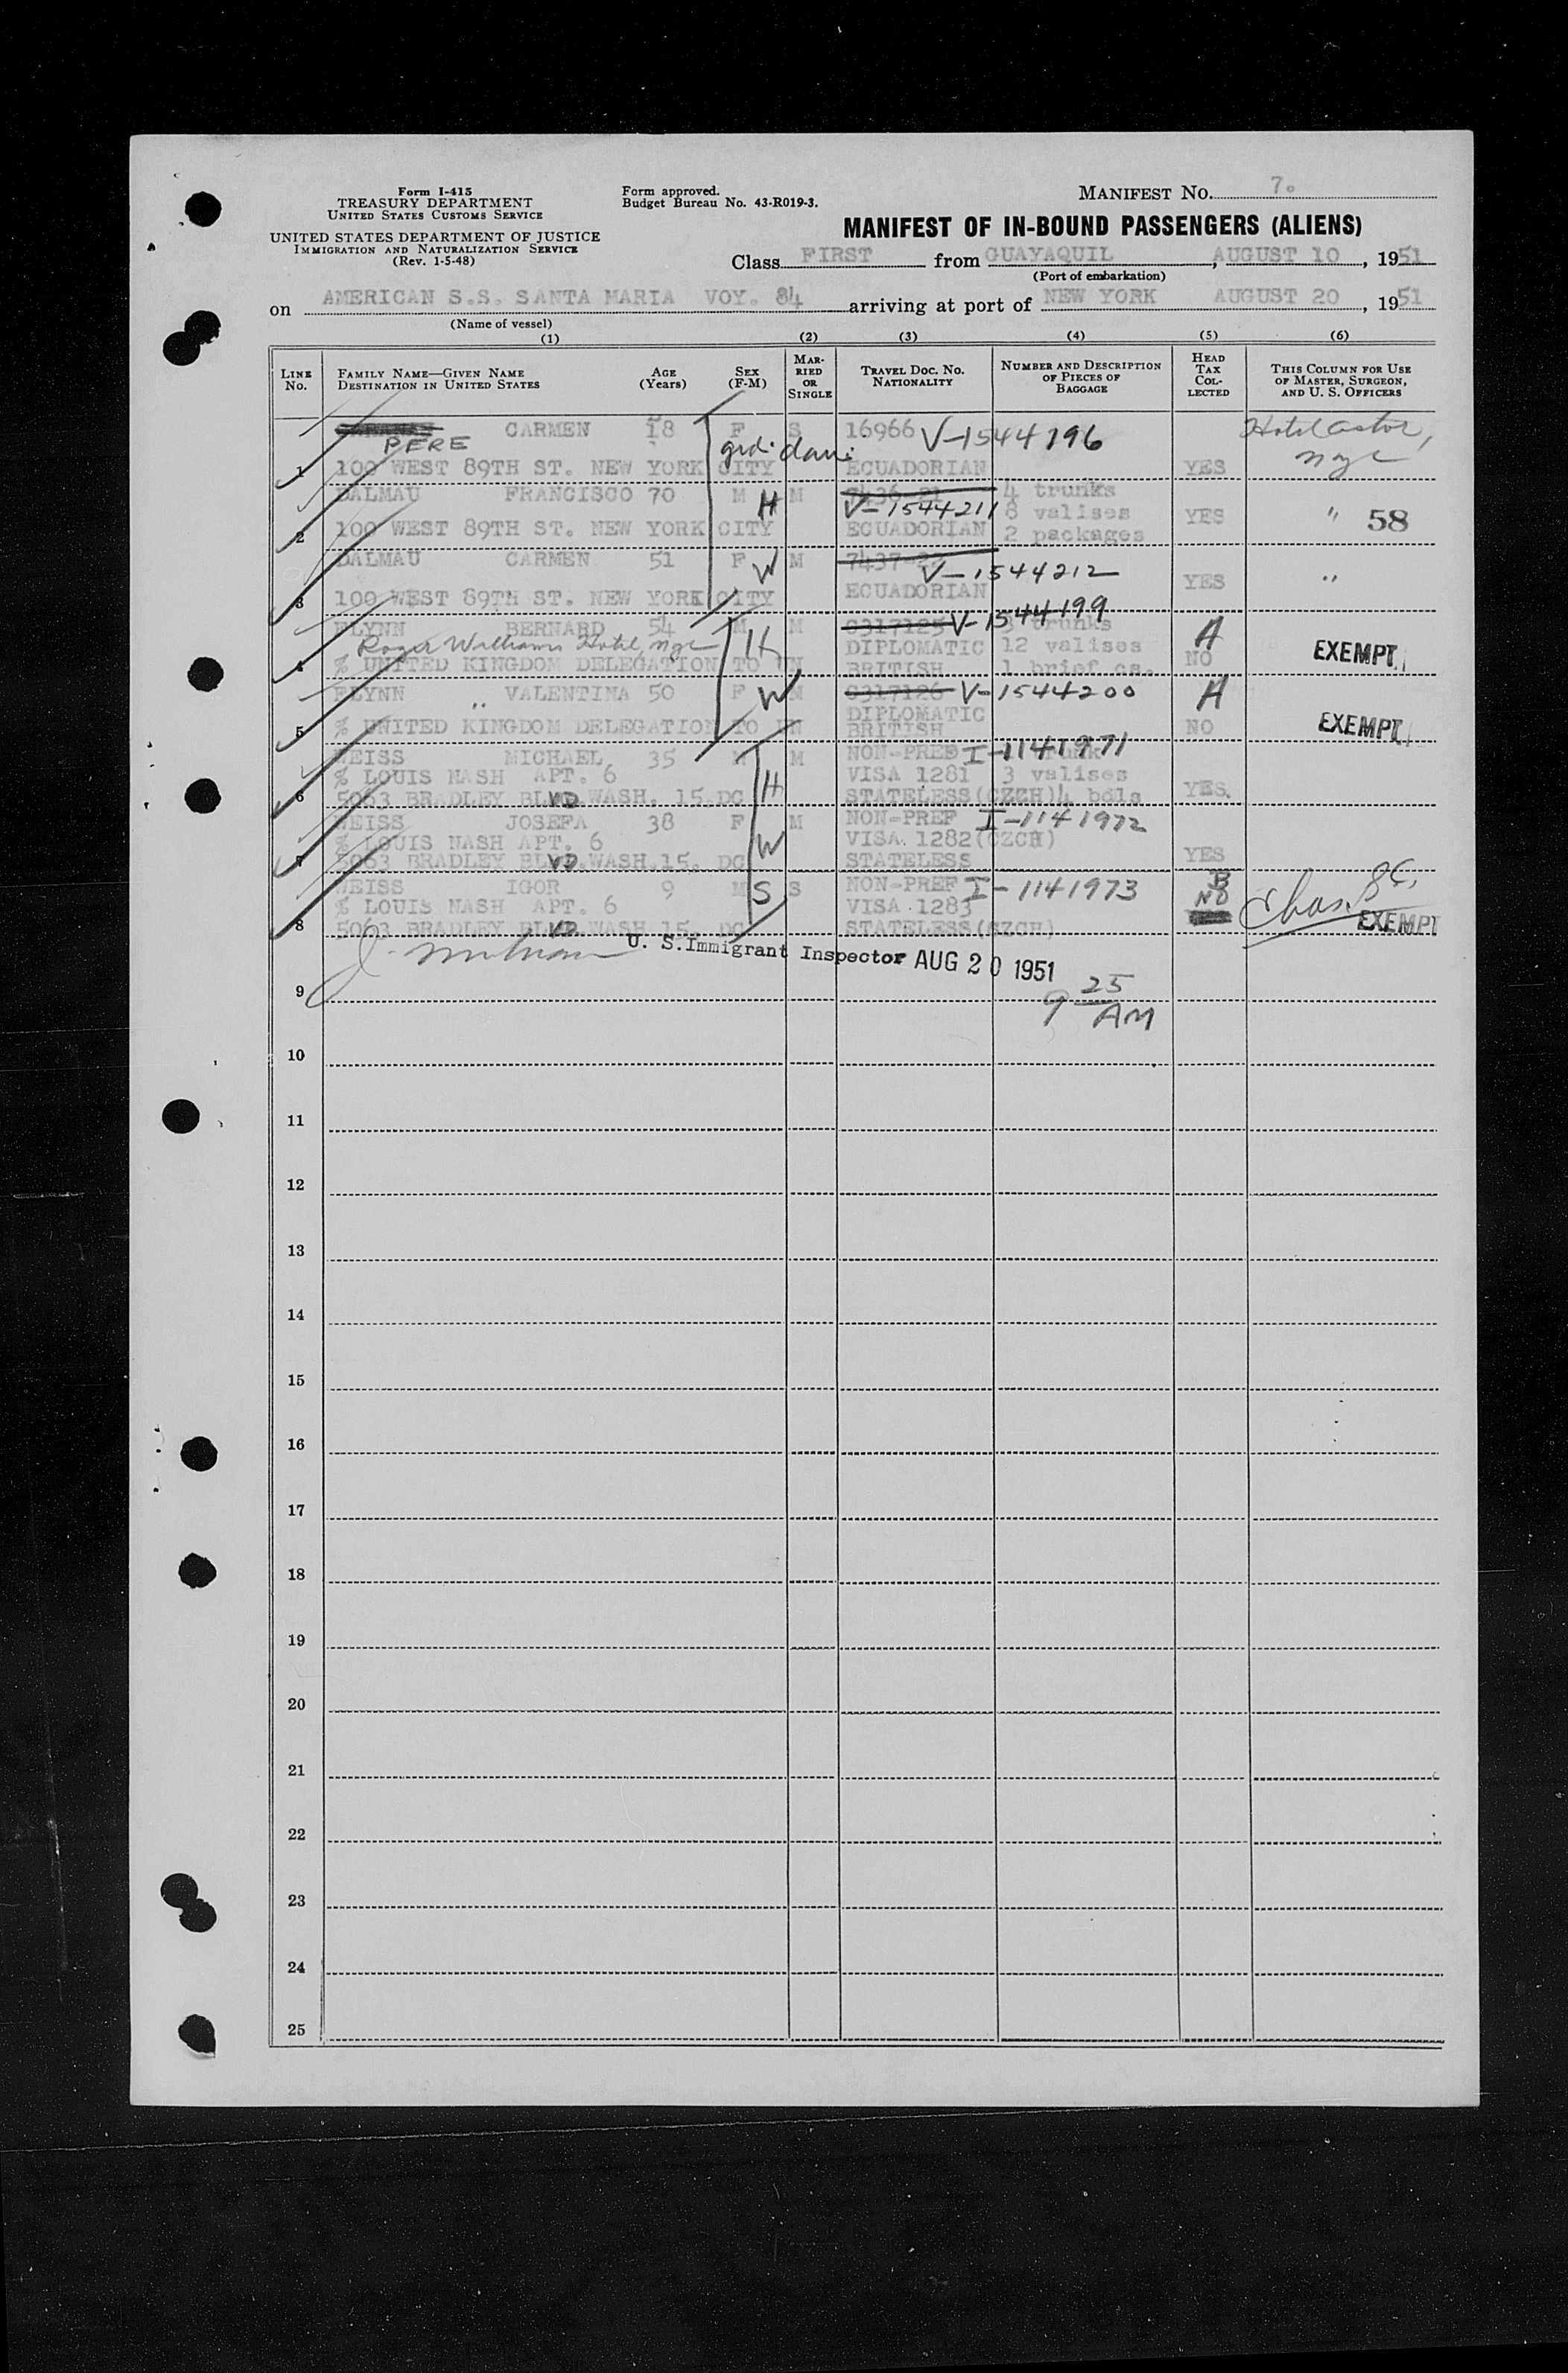 Form I-415
TREASURY DEPARTMENT
UNITED STATES CUSTOMS SERVICE
UNITED STATES DEPARTMENT OF JUSTICE
IMMIGRATION AND NATURALIZATION SERVICE
(Rev. 1-5-48)
Form approved.
Budget Bureau No. 43-R019-3.
MANIFEST NO. 7.
MANIFEST OF IN-BOUND PASSENGERS (ALIENS)
Class FIRST from GUAYAQUIL, AUGUST 10, 1951
(Port of embarkation)
on AMERICAN S.S. SANTA MARIA VOY. 84 arriving at port of NEW YORK AUGUST 20, 1951
(Name of vessel)
(1) (2) (3) (4) (5) (6)
LINE No. FAMILY NAME—GIVEN NAME DESTINATION IN UNITED STATES AGE (Years) SEX (F-M) MARRIED OR SINGLE TRAVEL DOC. NO. NATIONALITY NUMBER AND DESCRIPTION OF PIECES OF BAGGAGE HEAD TAX COLLECTED THIS COLUMN FOR USE OF MASTER, SURGEON, AND U. S. OFFICERS
CARMEN 18 F S 16966 V-1544196 Hotel Astor,
PERE nyc
1 100 WEST 89TH ST. NEW YORK CITY ECUADORIAN YES
DALMAU FRANCISCO 70 M H M 7436-21 4 trunks
V-1544211 8 valises
2 100 WEST 89TH ST. NEW YORK CITY ECUADORIAN 2 packages YES " 58
DALMAU CARMEN 51 F W M 7437-22
V-1544212
3 100 WEST 89TH ST. NEW YORK CITY ECUADORIAN YES "
FLYNN BERNARD 54 M H M 0317125 V-1544199 3 trunks A
Roger Williams Hotel, nyc DIPLOMATIC 12 valises
4 % UNITED KINGDOM DELEGATION TO UN BRITISH 1 brief cs. NO EXEMPT
FLYNN " VALENTINA 50 F W M 0317126 V-1544200 A
DIPLOMATIC
5 % UNITED KINGDOM DELEGATION TO UN BRITISH NO EXEMPT
WEISS MICHAEL 35 M H M NON-PREF I-1141971
% LOUIS NASH APT. 6 VISA 1281 3 valises
6 5063 BRADLEY BLVD. WASH. 15. DC STATELESS (CZCH) 4 bdls YES.
WEISS JOSEFA 38 F W M NON-PREF I-1141972
% LOUIS NASH APT. 6 VISA. 1282 (CZCH)
7 5063 BRADLEY BLVD. WASH. 15. DC STATELESS YES
WEISS IGOR 9 M S S NON-PREF I-1141973 B
% LOUIS NASH APT. 6 VISA 1283 NO
8 5063 BRADLEY BLVD WASH 15. DC STATELESS (CZCH) EXEMPT
U. S. Immigrant Inspector AUG 20 1951
9 25
9 AM
10
11
12
13
14
15
16
17
18
19
20
21
22
23
24
25